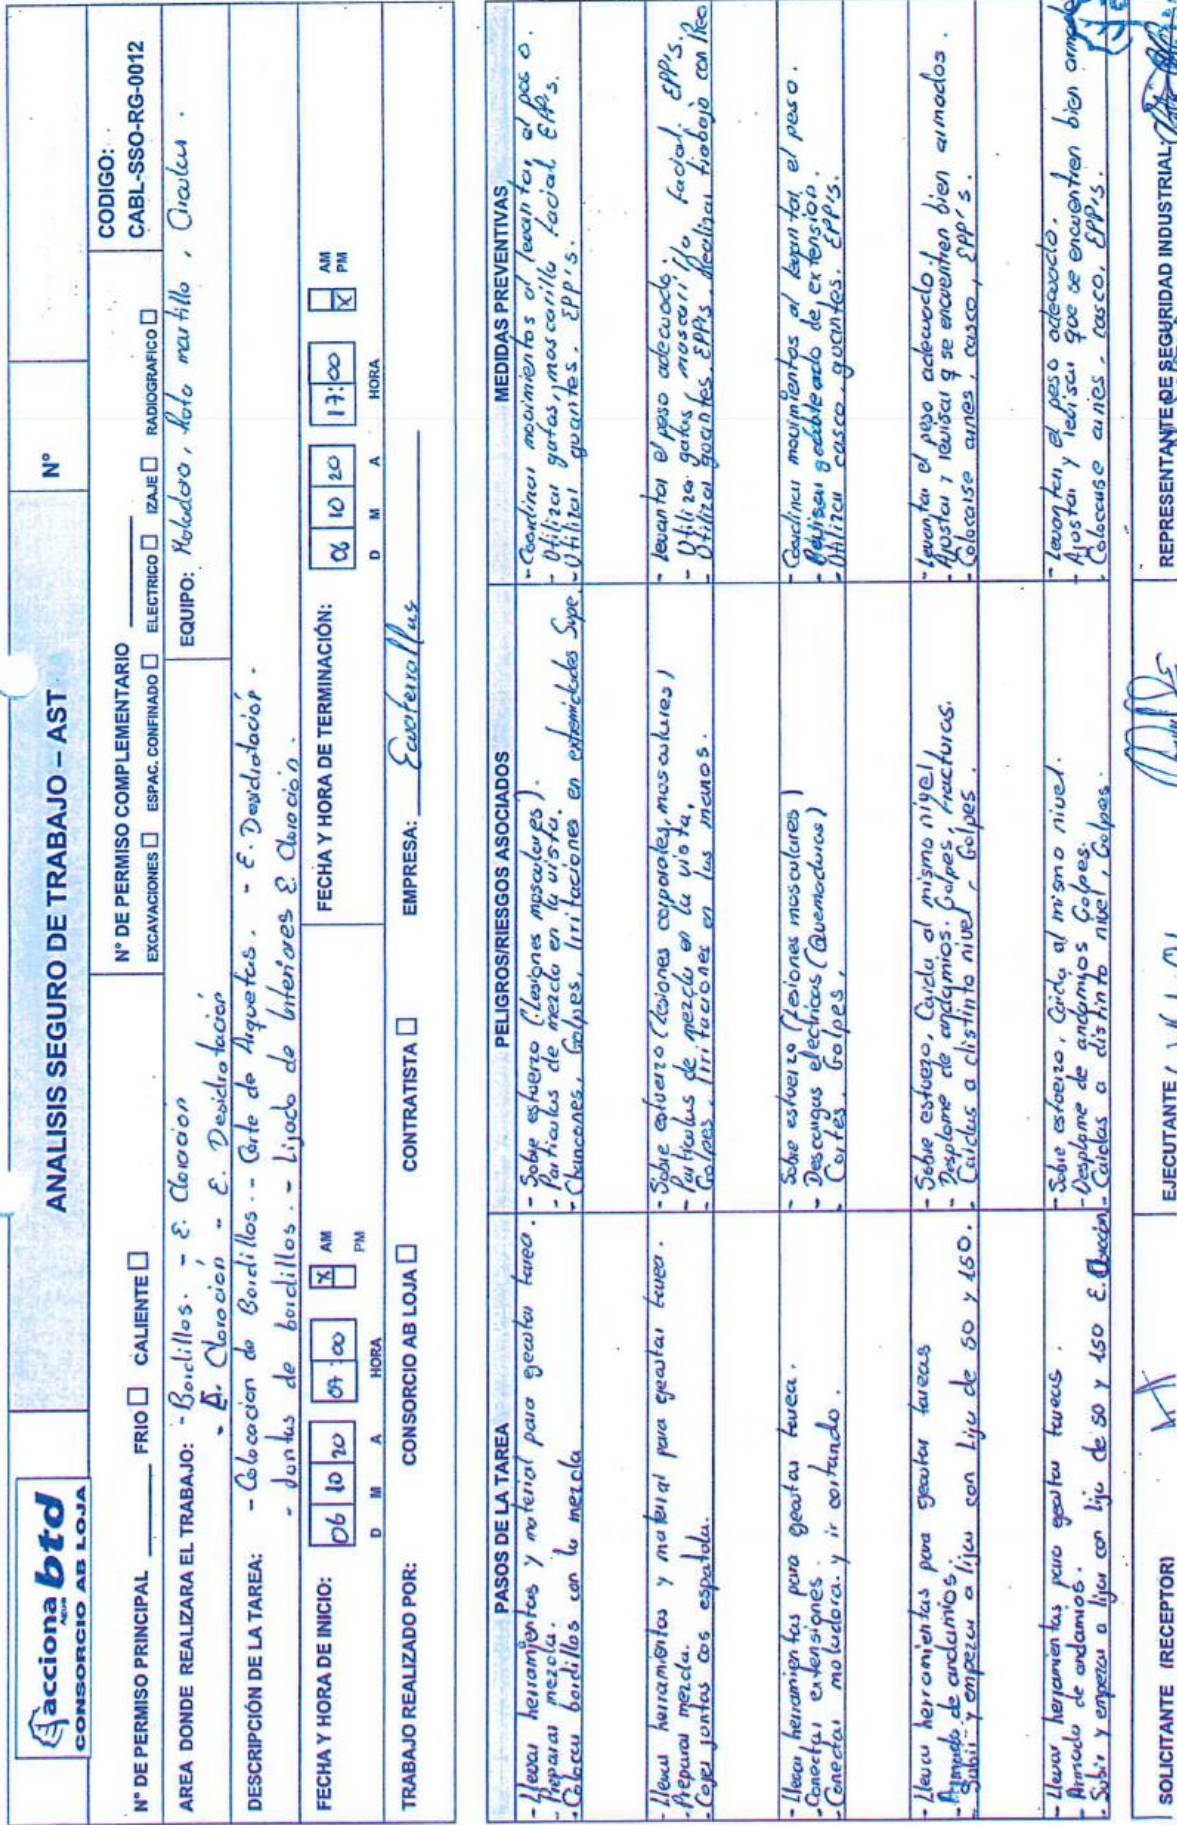 acciona btd
Agua
CONSORCIO AB LOJA
ANALISIS SEGURO DE TRABAJO – AST
N°
N° DE PERMISO PRINCIPAL
FRIO
CALIENTE
N° DE PERMISO COMPLEMENTARIO
EXCAVACIONES
ESPAC. CONFINADO
ELECTRICO
IZAJE
RADIOGRAFICO
CODIGO:
CABL-SSO-RG-0012
AREA DONDE REALIZARA EL TRABAJO: - Bordillos. - E. Cloracion
- E. Cloración - E. Desidratación
EQUIPO: Moladora, Roto martillo,
DESCRIPCIÓN DE LA TAREA: - Colocacion de Bordillos. - Corte de Arquetas. - E. Desidratación.
- Juntas de bordillos. - Lijado de Interiores E. Cloración.
FECHA Y HORA DE INICIO: 06 10 20 07:00 X AM
PM
D M A HORA
FECHA Y HORA DE TERMINACIÓN: 06 10 20 17:00 AM
X PM
D M A HORA
TRABAJO REALIZADO POR:
CONSORCIO AB LOJA
CONTRATISTA
EMPRESA: Ecuaferrallas
PASOS DE LA TAREA
PELIGROS/RIESGOS ASOCIADOS
MEDIDAS PREVENTIVAS
- Llevar herramientas y material para ejecutar tarea.
- Preparar mezcla.
- Colocar bordillos con la mezcla
- Sobre esfuerzo (Lesiones musculares).
- Particulas de mezcla en la vista.
- Chancones, Golpes, Irritaciones en extremidades Supe.
- Coordinar movimientos al levantar el peso.
- Utilizar gafas, mascarilla facial EPP's.
- Utilizar guantes. EPP's.
- Llevar herramientas y material para ejecutar tarea.
- Preparar mezcla.
- Coger juntas con espatula.
- Sobre esfuerzo (lesiones corporales, musculares)
- Particulas de mezcla en la vista,
- Golpes, Irritaciones en las manos.
- levantar el peso adecuado.
- Utilizar gafas, mascarilla facial. EPP's.
- Utilizar guantes EPP's. Realizar trabajo con
- Llevar herramientas para ejecutar tarea.
- Conectar extensiones.
- Conectar moladora y ir cortando.
- Sobre esfuerzo (lesiones musculares)
- Descargas electricas (Quemaduras)
Cortes, Golpes,
- Coordinar movimientos al levantar el peso.
- Revisar cableado de extension.
- Utilizar casco, guantes. EPP's.
- Llevar herramientas para ejecutar tareas
- Armado de andamios.
- Subir y empezar a lijar con Lija de 50 y 150.
- Sobre esfuerzo, Caida al mismo nivel
- Desplome de andamios. Golpes, Fracturas.
- Caidas a distinto nivel, Golpes.
- Levantar el peso adecuado.
- Ajustar y revisar q se encuentren bien armados.
- Colocarse arnes, casco, EPP's.
- Llevar herramientas para ejecutar tareas.
- Armado de andamios.
- Subir y empezar a lijar con lija de 50 y 150 E.
- Sobre esfuerzo, Caida al mismo nivel.
- Desplome de andamios Golpes.
- Caidas a distinto nivel, Golpes.
- Levantar el peso adecuado.
- Ajustar y revisar que se encuentren bien armado
- Colocarse arnes, casco, EPP's.
SOLICITANTE (RECEPTOR)
EJECUTANTE
REPRESENTANTE DE SEGURIDAD INDUSTRIAL: